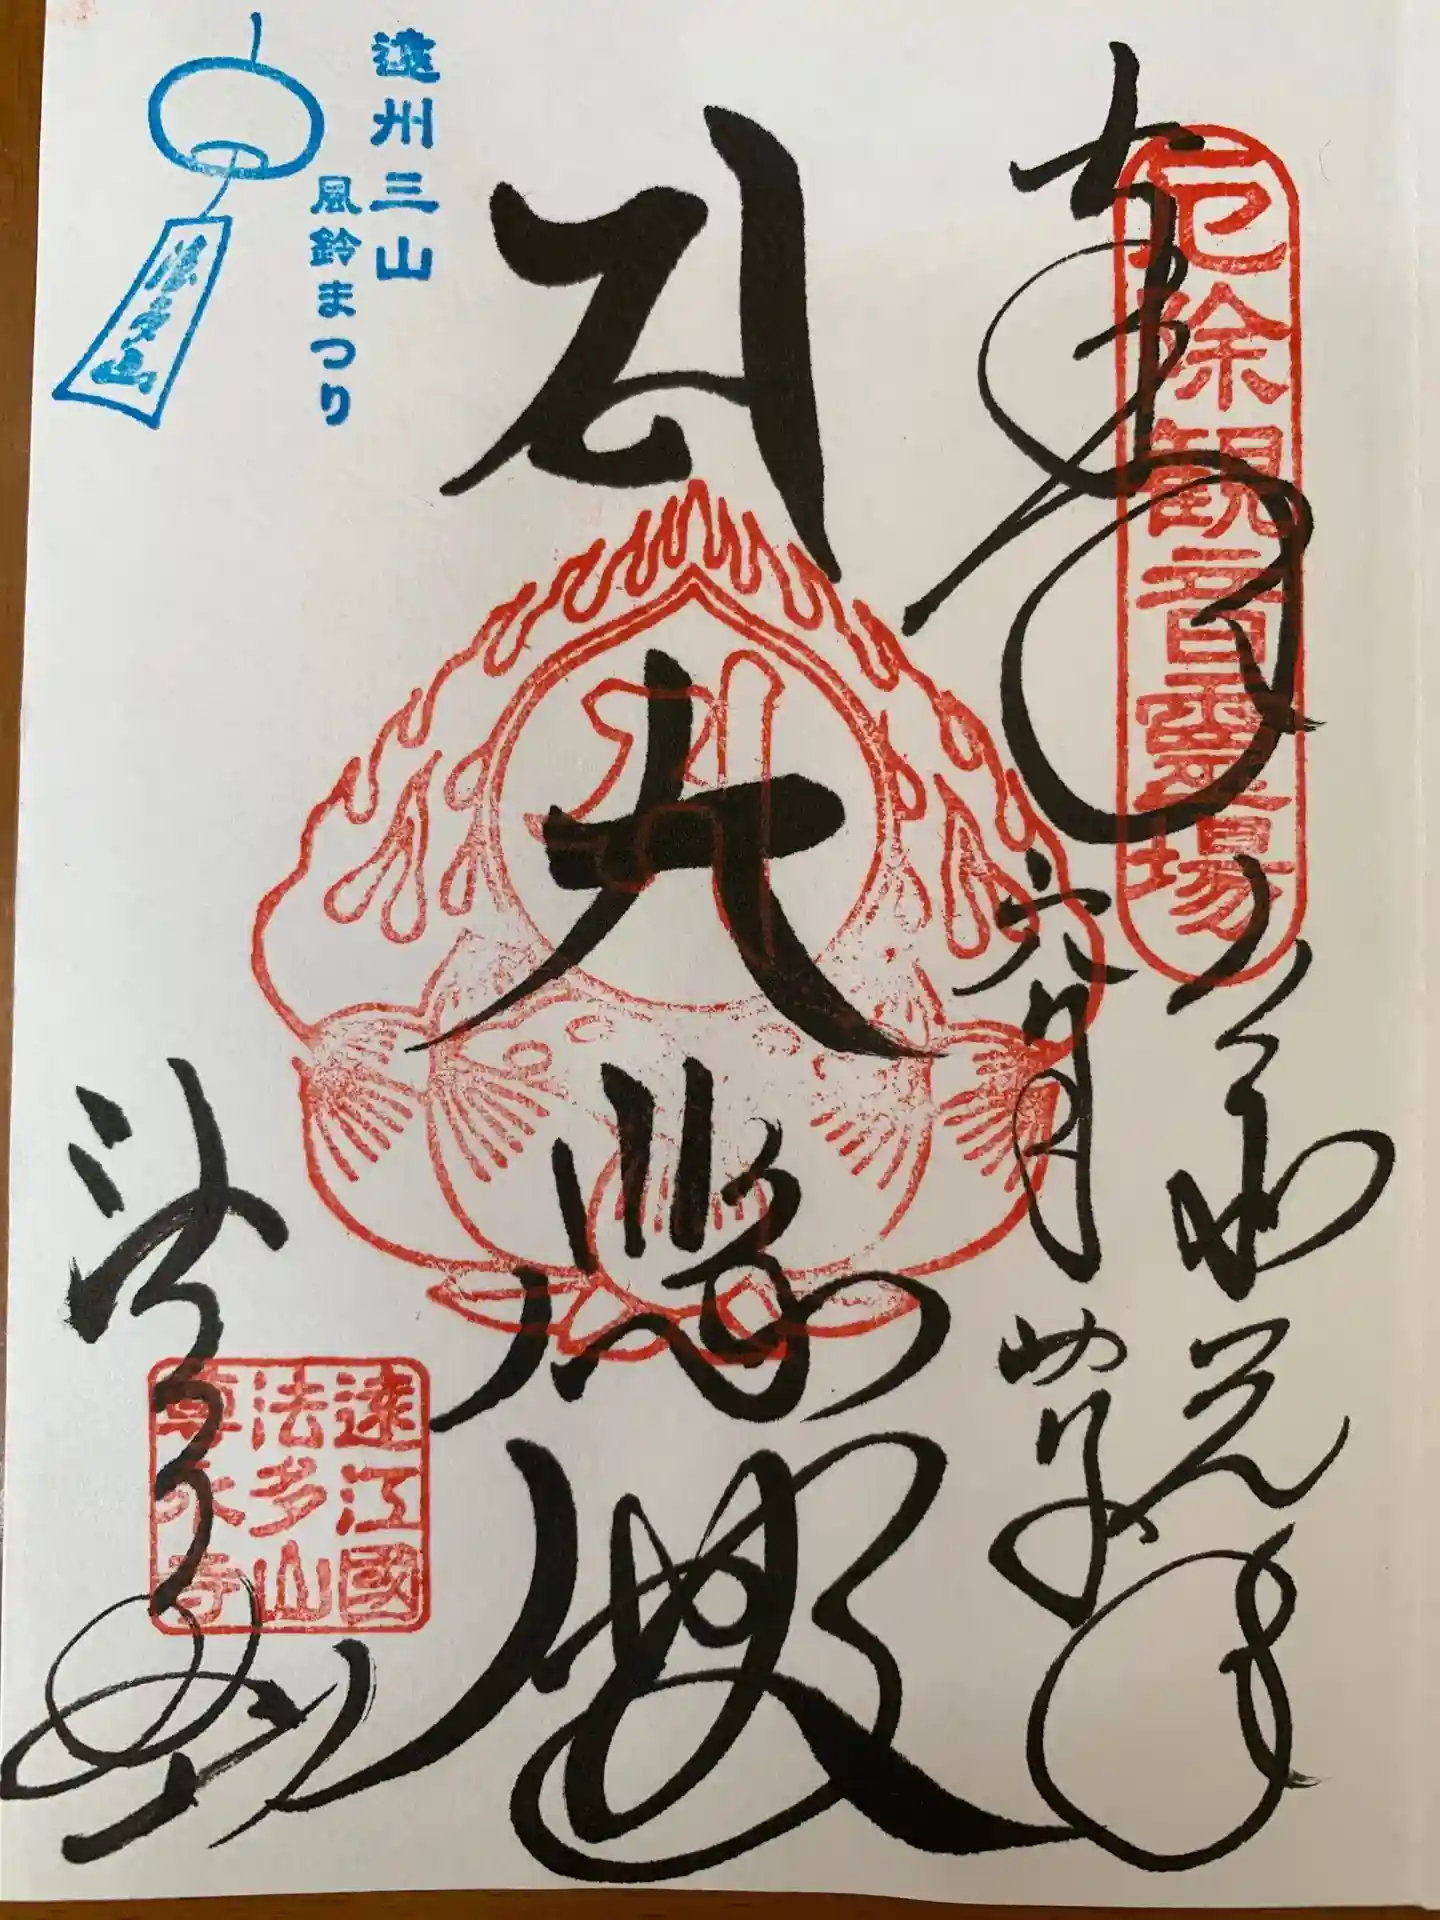 奉拝
厄除観音霊場
令和元年
六月
大悲殿
遠州三山
風鈴まつり
法多山
法多山
遠江國
法多山
尊永寺